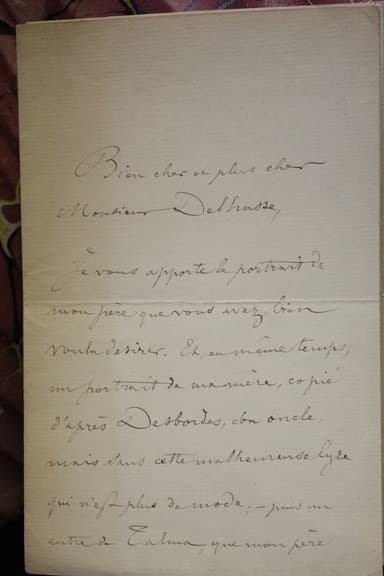 Bien cher et plus cher
Monsieur Delhasse,
Je vous apporte le portrait de
mon père que vous avez bien
voulu désirer. Et, en même temps,
un portrait de ma mère, copié
d'après Desbordes, son oncle.
mais sans cette malheureuse lyre
qui n'est plus de mode. – puis un
autre de Talma, que mon père